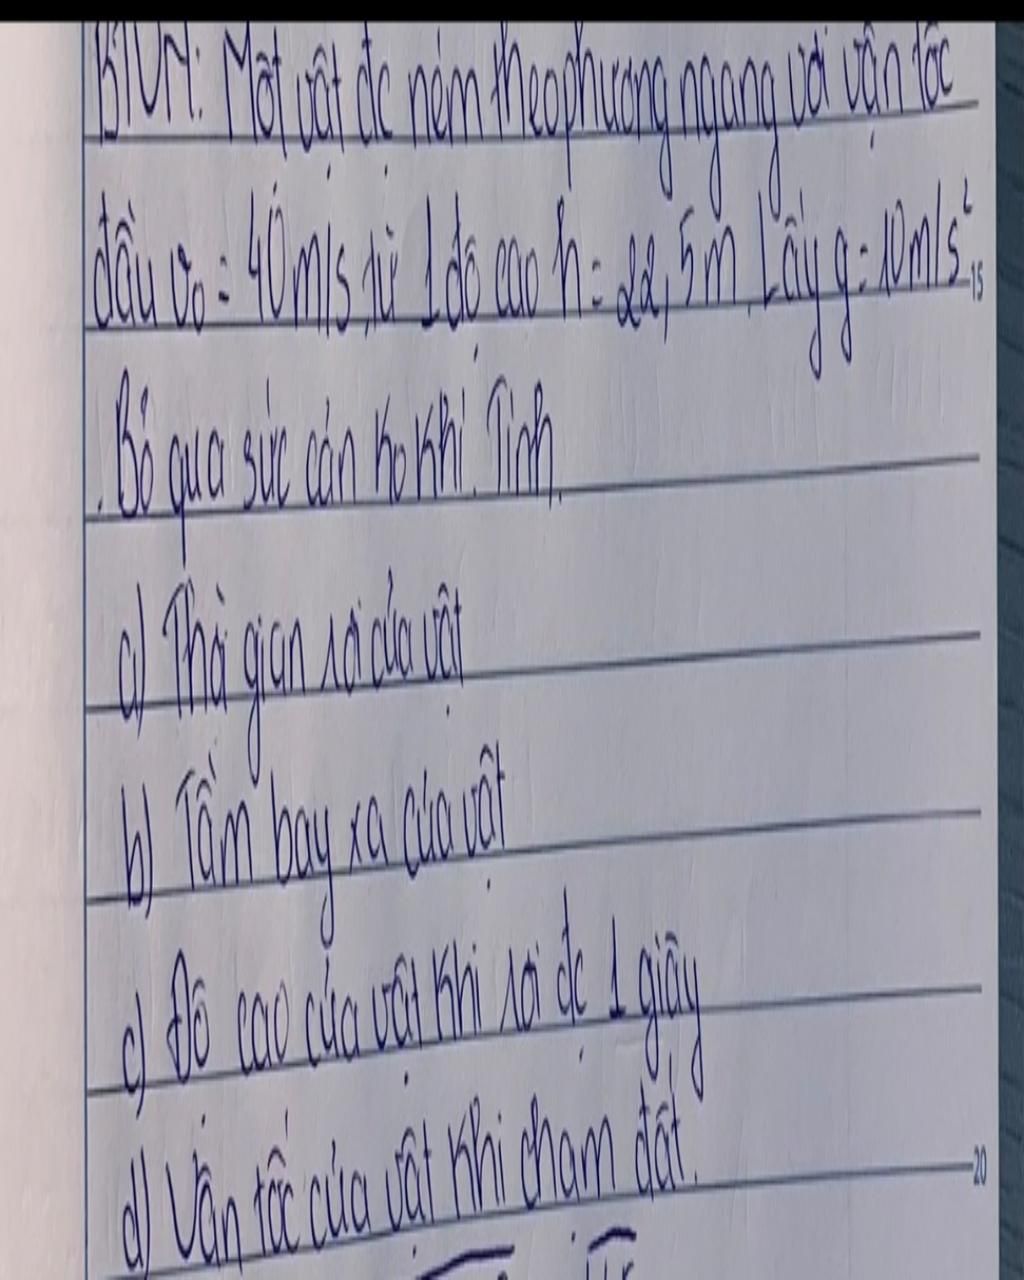 BTVN: Một vật đc ném theo phương ngang với vận tốc
đầu v₀ = 40m/s, từ 1 độ cao h = 22,5m. Lấy g = 10m/s²
15
. Bỏ qua sức cản ko khí. Tính.
a) Thời gian rơi của vật
b) Tầm bay xa của vật
c) Độ cao của vật khi rơi đc 1 giây
d) Vận tốc của vật khi chạm đất.
20